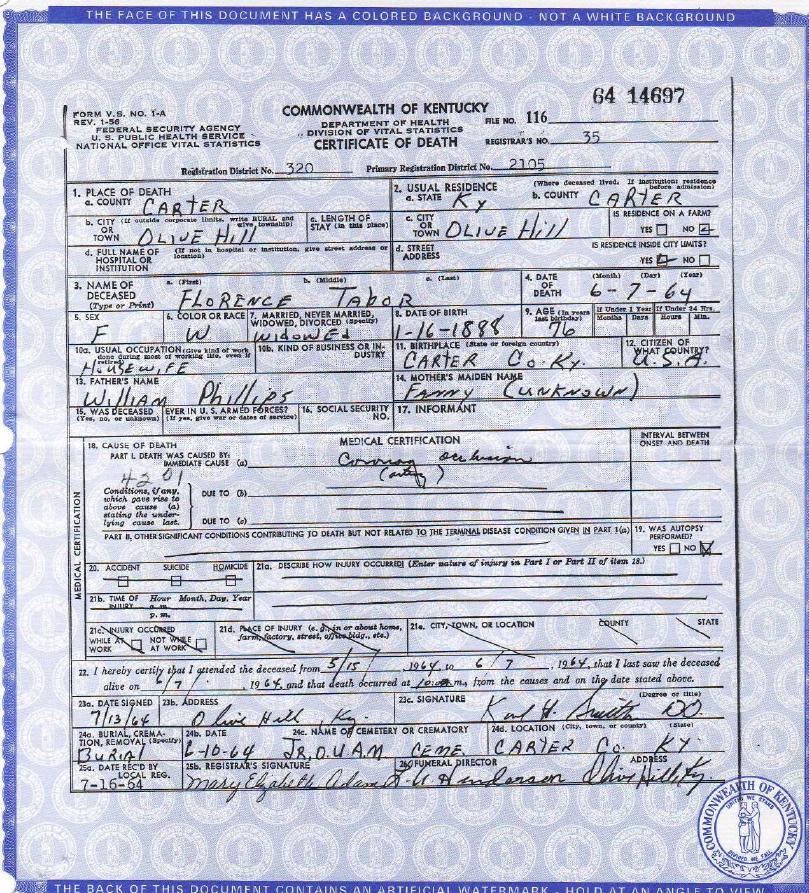 THE FACE OF THIS DOCUMENT HAS A COLORED BACKGROUND - NOT A WHITE BACKGROUND
64 14697
FORM V.S. NO. 1-A
REV. 1-56
FEDERAL SECURITY AGENCY
U. S. PUBLIC HEALTH SERVICE
NATIONAL OFFICE VITAL STATISTICS
COMMONWEALTH OF KENTUCKY
DEPARTMENT OF HEALTH
DIVISION OF VITAL STATISTICS
CERTIFICATE OF DEATH
FILE NO. 116
REGISTRAR'S NO. 35
Registration District No. 320 Primary Registration District No. 2105
1. PLACE OF DEATH
a. COUNTY CARTER
2. USUAL RESIDENCE (Where deceased lived. If institution: residence before admission)
a. STATE Ky b. COUNTY CARTER
b. CITY (If outside corporate limits, write RURAL and give township)
OR
TOWN OLIVE Hill
c. LENGTH OF
STAY (in this place)
c. CITY
OR
TOWN OLIVE Hill
IS RESIDENCE ON A FARM?
YES NO
d. FULL NAME OF (If not in hospital or institution, give street address or location)
HOSPITAL OR
INSTITUTION
d. STREET
ADDRESS
IS RESIDENCE INSIDE CITY LIMITS?
YES NO
3. NAME OF
DECEASED
(Type or Print)
a. (First) b. (Middle) c. (Last)
FLORENCE TABOR
4. DATE
OF
DEATH
(Month) (Day) (Year)
6-7-64
5. SEX
F
6. COLOR OR RACE
W
7. MARRIED, NEVER MARRIED,
WIDOWED, DIVORCED (Specify)
WIDOWED
8. DATE OF BIRTH
1-16-1888
9. AGE (In years
last birthday)
76
If Under 1 Year If Under 24 Hrs.
Months Days Hours Min.
10a. USUAL OCCUPATION (Give kind of work
done during most of working life, even if
retired)
HOUSEWIFE
10b. KIND OF BUSINESS OR IN-
DUSTRY
11. BIRTHPLACE (State or foreign country)
CARTER Co. Ky.
12. CITIZEN OF
WHAT COUNTRY?
U.S.A.
13. FATHER'S NAME
WILLIAM Phillips
14. MOTHER'S MAIDEN NAME
FANNY (UNKNOWN)
15. WAS DECEASED EVER IN U. S. ARMED FORCES?
(Yes, no, or unknown) (If yes, give war or dates of service)
16. SOCIAL SECURITY
NO.
17. INFORMANT
MEDICAL CERTIFICATION
18. CAUSE OF DEATH
PART I. DEATH WAS CAUSED BY:
IMMEDIATE CAUSE (a) Coronary occlusion
(artery)
INTERVAL BETWEEN
ONSET AND DEATH
4201
Conditions, if any,
which gave rise to
above cause (a)
stating the under-
lying cause last.
DUE TO (b)
DUE TO (c)
PART II. OTHER SIGNIFICANT CONDITIONS CONTRIBUTING TO DEATH BUT NOT RELATED TO THE TERMINAL DISEASE CONDITION GIVEN IN PART 1(a)
19. WAS AUTOPSY
PERFORMED?
YES NO
MEDICAL CERTIFICATION
20. ACCIDENT SUICIDE HOMICIDE
21a. DESCRIBE HOW INJURY OCCURRED (Enter nature of injury in Part I or Part II of item 18.)
21b. TIME OF Hour Month, Day, Year
INJURY a. m.
p. m.
21c. INJURY OCCURRED
WHILE AT NOT WHILE
WORK AT WORK
21d. PLACE OF INJURY (e. g., in or about home,
farm, factory, street, office bldg., etc.)
21e. CITY, TOWN, OR LOCATION COUNTY STATE
22. I hereby certify that I attended the deceased from 5/15, 1964, to 6/7, 1964, that I last saw the deceased
alive on 6/7, 1964, and that death occurred at m., from the causes and on the date stated above.
23a. DATE SIGNED
7/13/64
23b. ADDRESS
Olive Hill, Ky.
23c. SIGNATURE (Degree or title)
Karl H. Smith DO.
24a. BURIAL, CREMA-
TION, REMOVAL (Specify)
BURIAL
24b. DATE
6-10-64
24c. NAME OF CEMETERY OR CREMATORY
JR.O.U.A.M CEME.
24d. LOCATION (City, town, or county) (State)
CARTER Co. KY
25a. DATE REC'D BY
LOCAL REG.
7-16-64
25b. REGISTRAR'S SIGNATURE
Mary Elizabeth Adams
26. FUNERAL DIRECTOR ADDRESS
Henderson Olive Hill Ky.
COMMONWEALTH OF KENTUCKY
UNITED WE STAND
DIVIDED WE FALL
THE BACK OF THIS DOCUMENT CONTAINS AN ARTIFICIAL WATERMARK - HOLD AT AN ANGLE TO VIEW